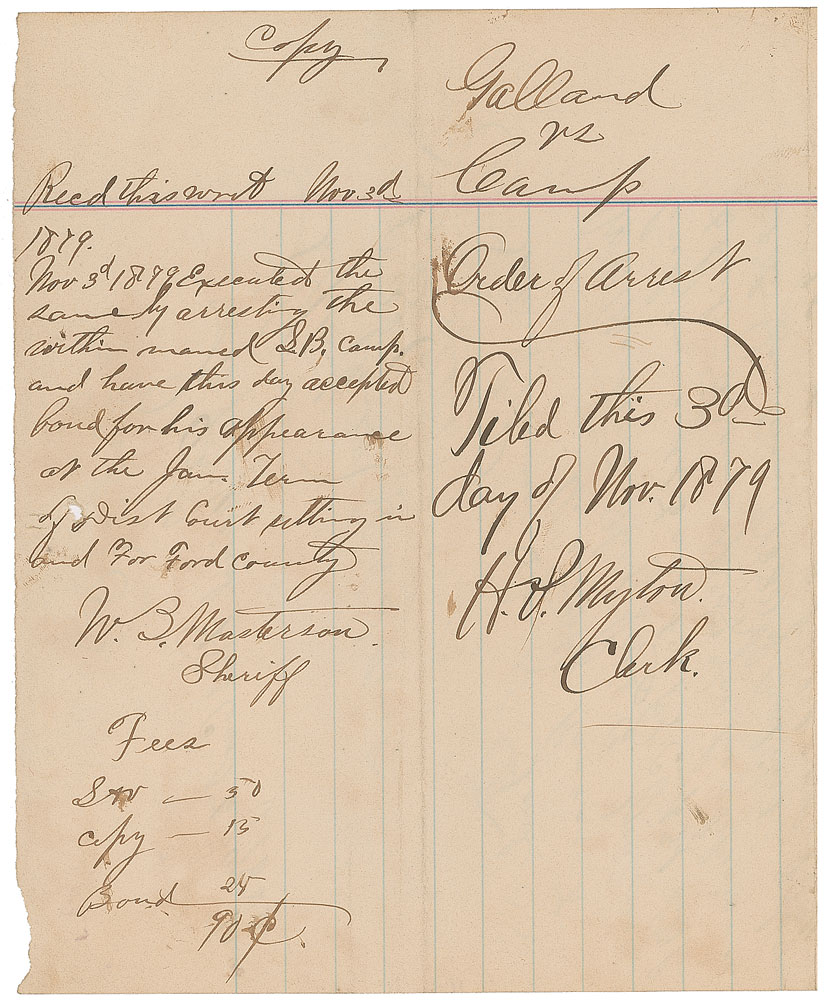 Copy
Recd this writ Nov 3d
1879.
Nov 3d 1879 Executed the
same by arresting the
within named S.B. Camp.
and have this day accepted
bond for his appearance
at the Jan. Term
of Dist Court sitting in
and For Ford county
W. B. Masterson.
Sheriff
Fees
Srv — 50
copy — 15
Bond 25
90 ¢.
Galland
vs
Camp
Order of Arrest
Filed this 3d
day of Nov. 1879
H. P. Myton.
Clerk.